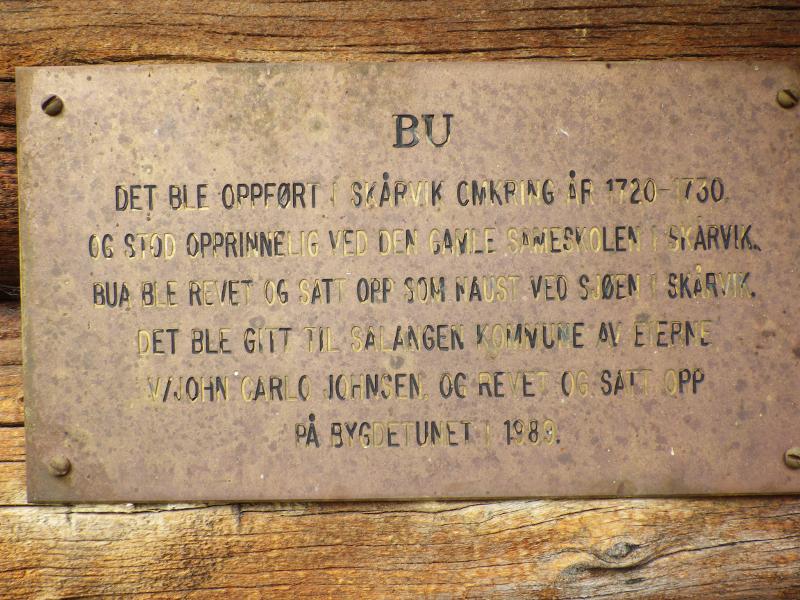 BU
DET BLE OPPFØRT I SKÅRVIK OMKRING ÅR 1720-1730
OG STOD OPPRINNELIG VED DEN GAMLE SAMESKOLEN I SKÅRVIK.
BUA BLE REVET OG SATT OPP SOM NAUST VED SJØEN I SKÅRVIK.
DET BLE GITT TIL SALANGEN KOMMUNE AV EIERNE
V/JOHN CARLO JOHNSEN, OG REVET OG SATT OPP
PÅ BYGDETUNET I 1989.